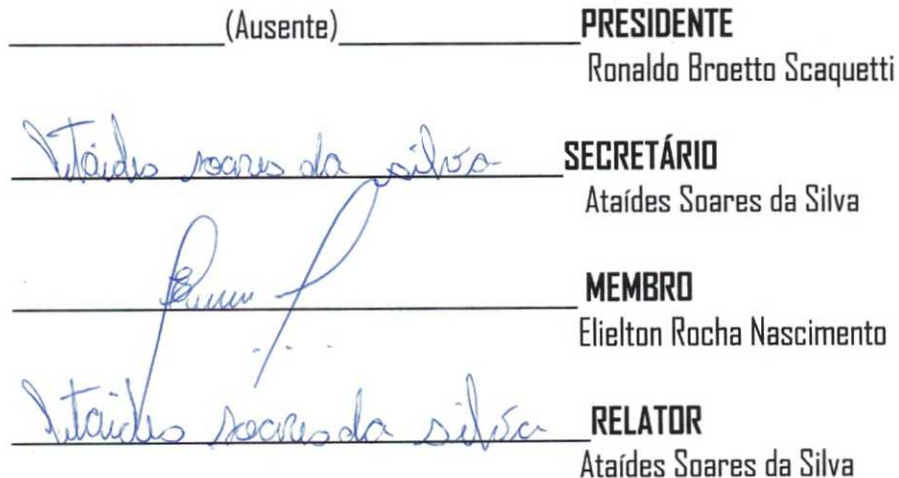 (Ausente) PRESIDENTE
Ronaldo Broetto Scaquetti
Ataídes soares da silva SECRETÁRIO
Ataídes Soares da Silva
MEMBRO
Elielton Rocha Nascimento
Ataídes soares da silva RELATOR
Ataídes Soares da Silva